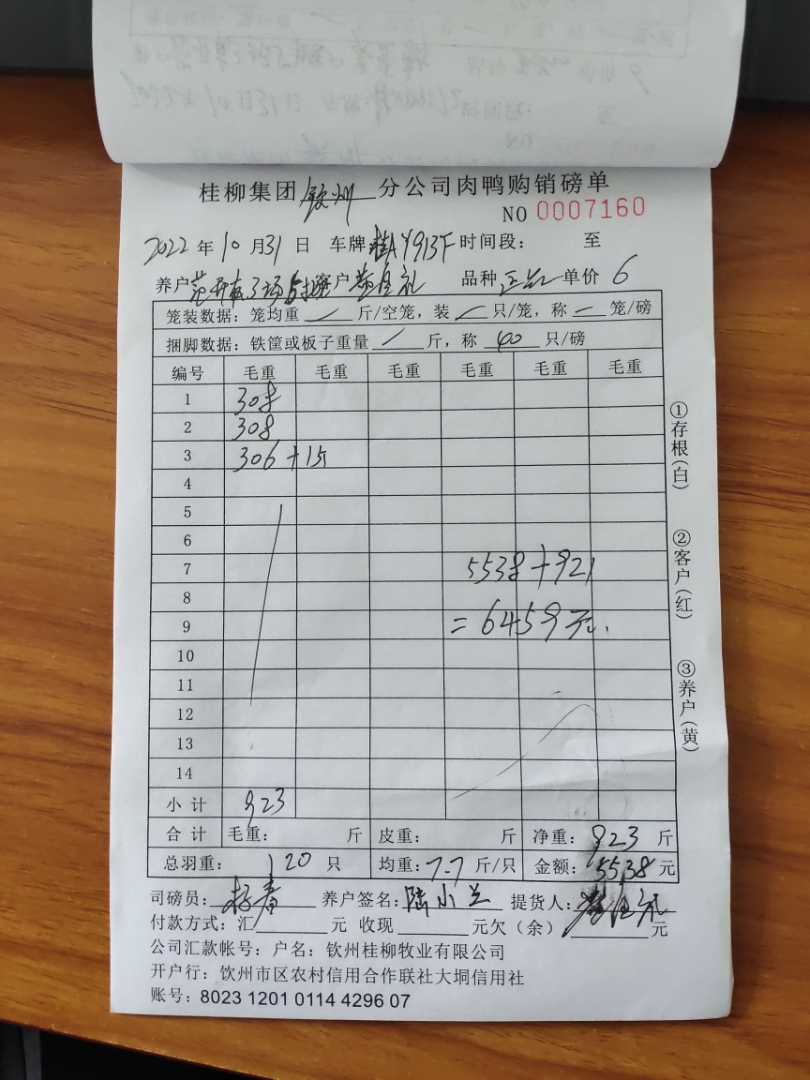 桂柳集团 钦州 分公司肉鸭购销磅单
NO 0007160
2022 年 10 月 31 日 车牌 桂AY913F 时间段： 至
养户 客户 品种 正品 单价 6
笼装数据：笼均重 斤/空笼，装 只/笼，称 笼/磅
捆脚数据：铁筐或板子重量 斤，称 40 只/磅
编号 毛重 毛重 毛重 毛重 毛重 毛重
1 308
2 308
3 306+15
4
5
6
7 5538+921
8
9 =6459元.
10
11
12
13
14
小计 923
合计 毛重： 斤 皮重： 斤 净重：923 斤
总羽重： 120 只 均重：7.7 斤/只 金额：5538 元
司磅员： 养户签名：陆小兰 提货人：
付款方式：汇 元 收现 元欠（余） 元
公司汇款帐号：户名：钦州桂柳牧业有限公司
开户行：钦州市区农村信用合作联社大垌信用社
账号：8023 1201 0114 4296 07
①存根（白）
②客户（红）
③养户（黄）